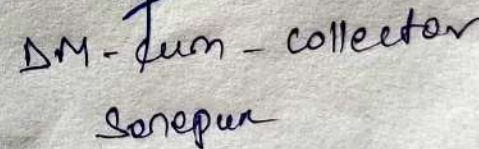 DM - Cum - collector
Sonepur